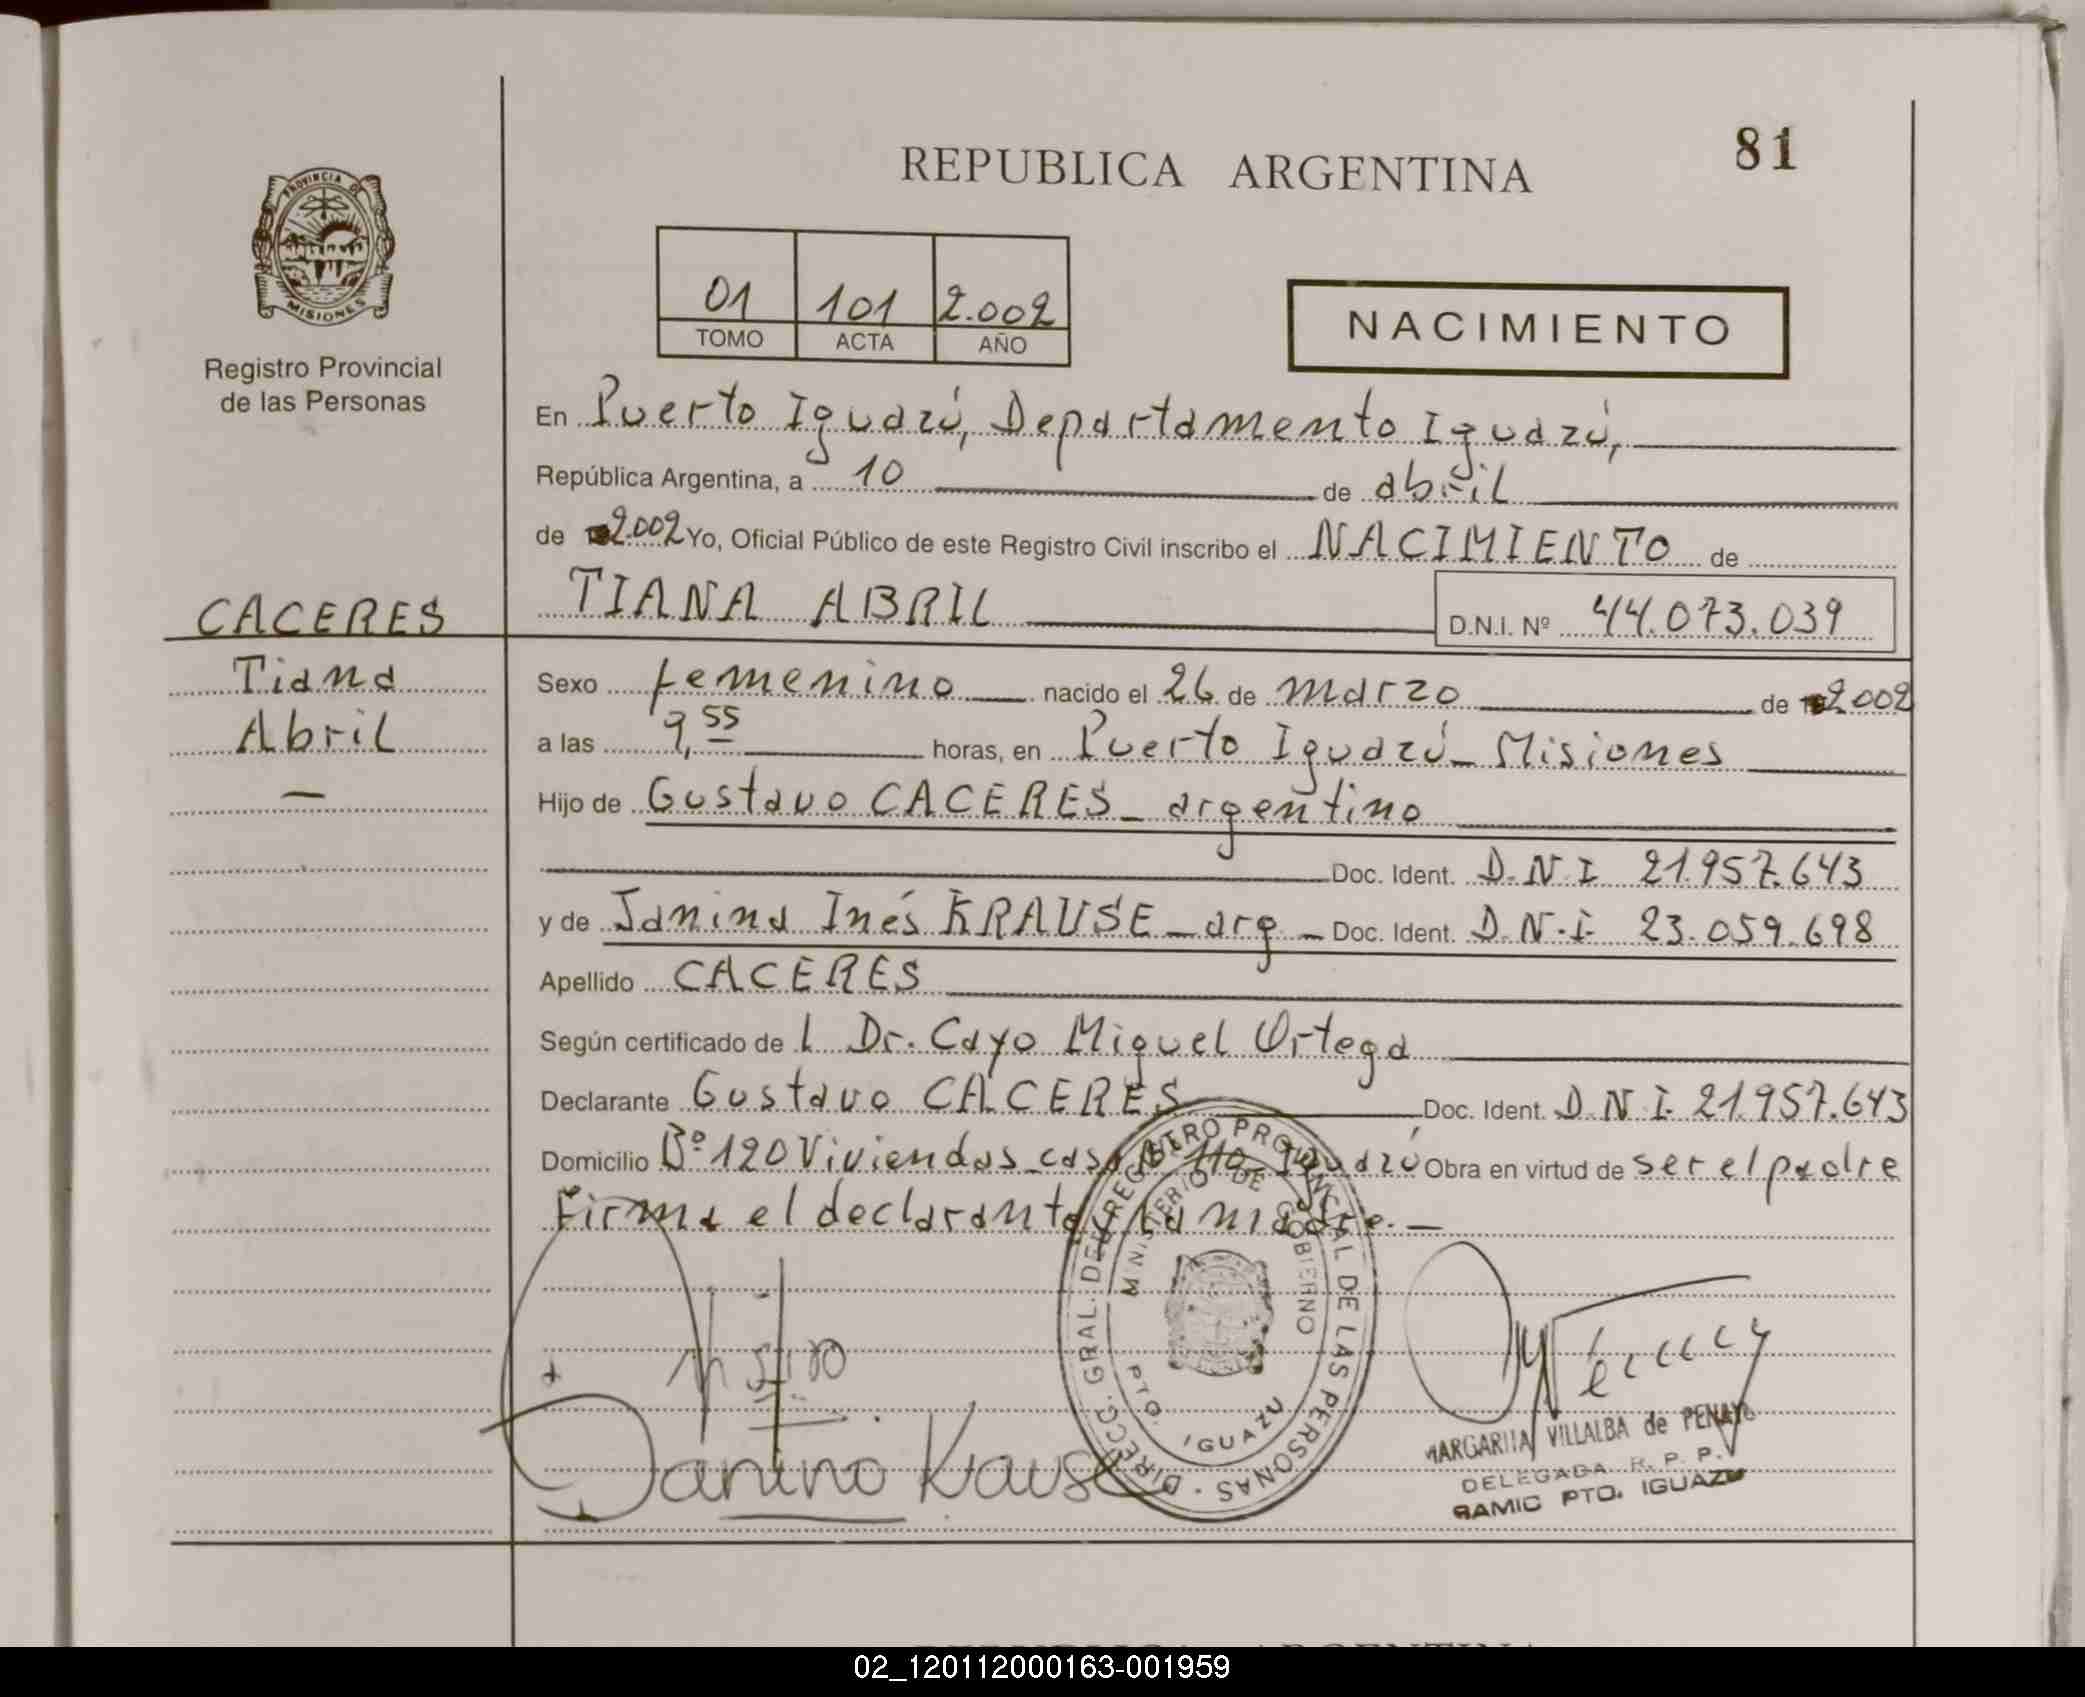 81
REPUBLICA ARGENTINA
PROVINCIA DE
MISIONES
Registro Provincial
de las Personas
01 101 2.002
TOMO ACTA AÑO
NACIMIENTO
En Puerto Iguazú, Departamento Iguazú,
República Argentina, a 10 de abril
de 2.002 Yo, Oficial Público de este Registro Civil inscribo el NACIMIENTO de
CACERES
TIANA ABRIL D.N.I. Nº 44.073.039
Tiana
Abril
—
Sexo femenino nacido el 26 de marzo de 2.002
a las 9,55 horas, en Puerto Iguazú - Misiones
Hijo de Gustavo CACERES - argentino
Doc. Ident. D.N.I 21.957.643
y de Janina Inés KRAUSE - arg - Doc. Ident. D.N.I. 23.059.698
Apellido CACERES
Según certificado del Dr. Cayo Miguel Ortega
Declarante Gustavo CACERES Doc. Ident. D.N.I. 21.957.643
Domicilio Bº 120 Viviendas casa Nº 110 - Iguazú Obra en virtud de ser el padre
Firma el declarante y la madre. —
DIRECC. GRAL. DEL REGISTRO PROVINCIAL DE LAS PERSONAS
MINISTERIO DE GOBIERNO
PTO. IGUAZU
Janina Krause
MARGARITA VILLALBA de PENAYO
DELEGADA R. P. P.
SAMIC PTO. IGUAZU
REPUBLICA ARGENTINA
02_120112000163-001959